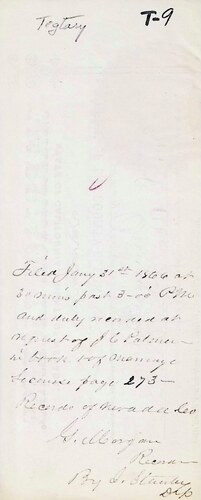 Tegtary
T-9
Filed Jany 31st 1866 at
30 min's past 3-00 PM
and duly recorded at
request of J C Palmer
in book of marriage
License page 273-
Records of Nevada Co
H. Morgan
Recorder
By J. Stanley
Dep